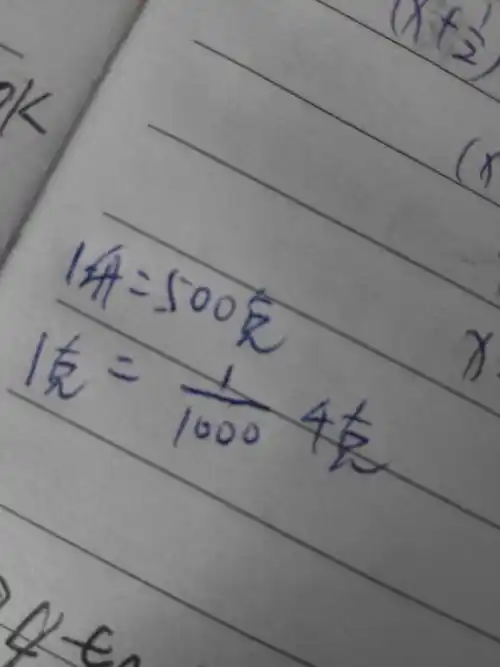 (x+½)
OK
(x
x
1斤=500克
1克=1/1000 4克